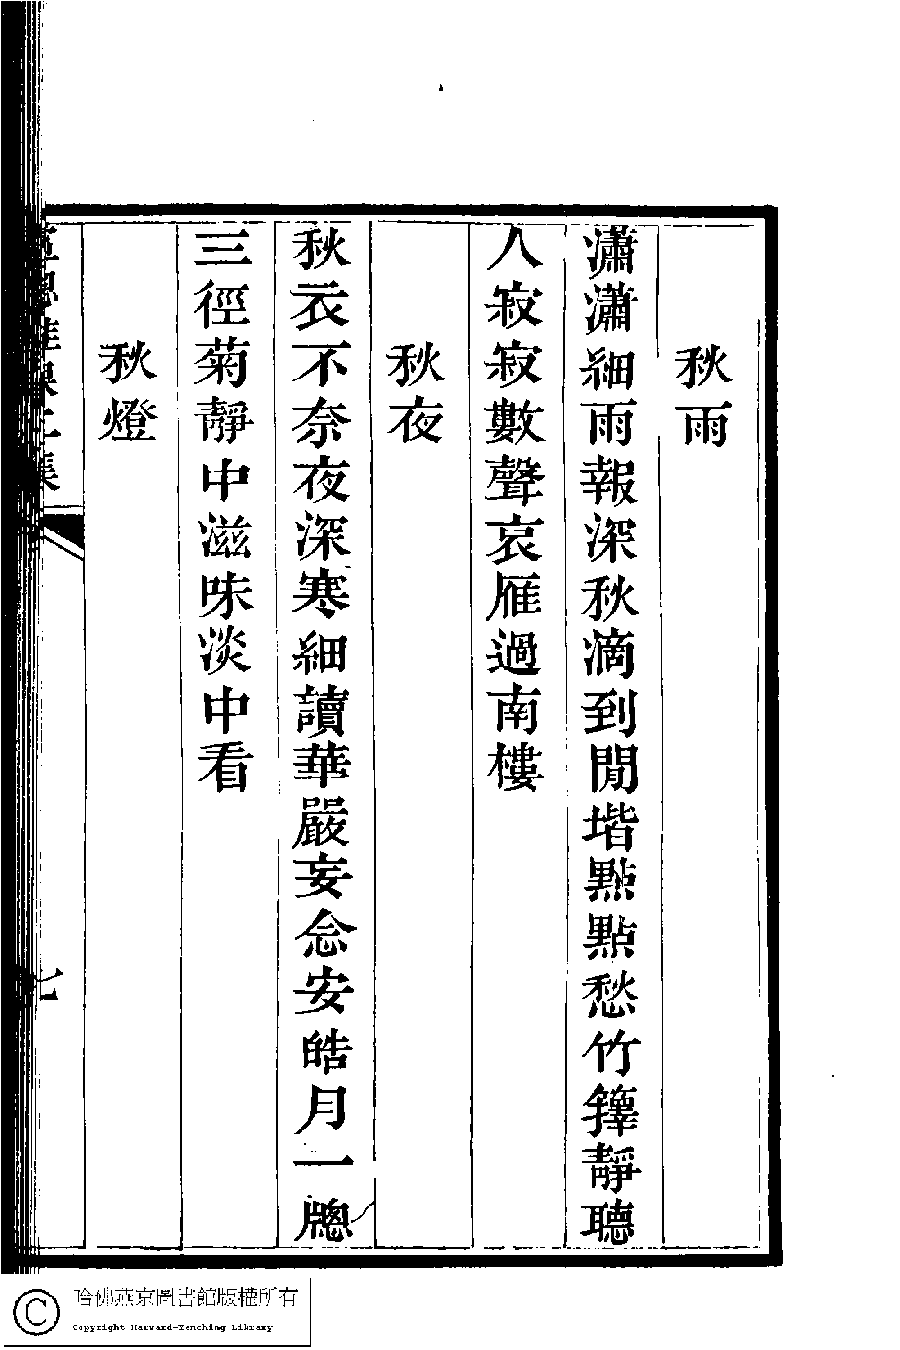 秋雨
瀟瀟細雨報深秋滴到閒堦點點愁竹籜靜聽
人寂寂數聲哀雁過南樓
秋夜
秋衣不奈夜深寒細讀華嚴妄念安皓月一牕
三徑菊靜中滋味淡中看
秋燈
七
哈佛燕京圖書館版權所有
Copyright Harvard-Yenching Library